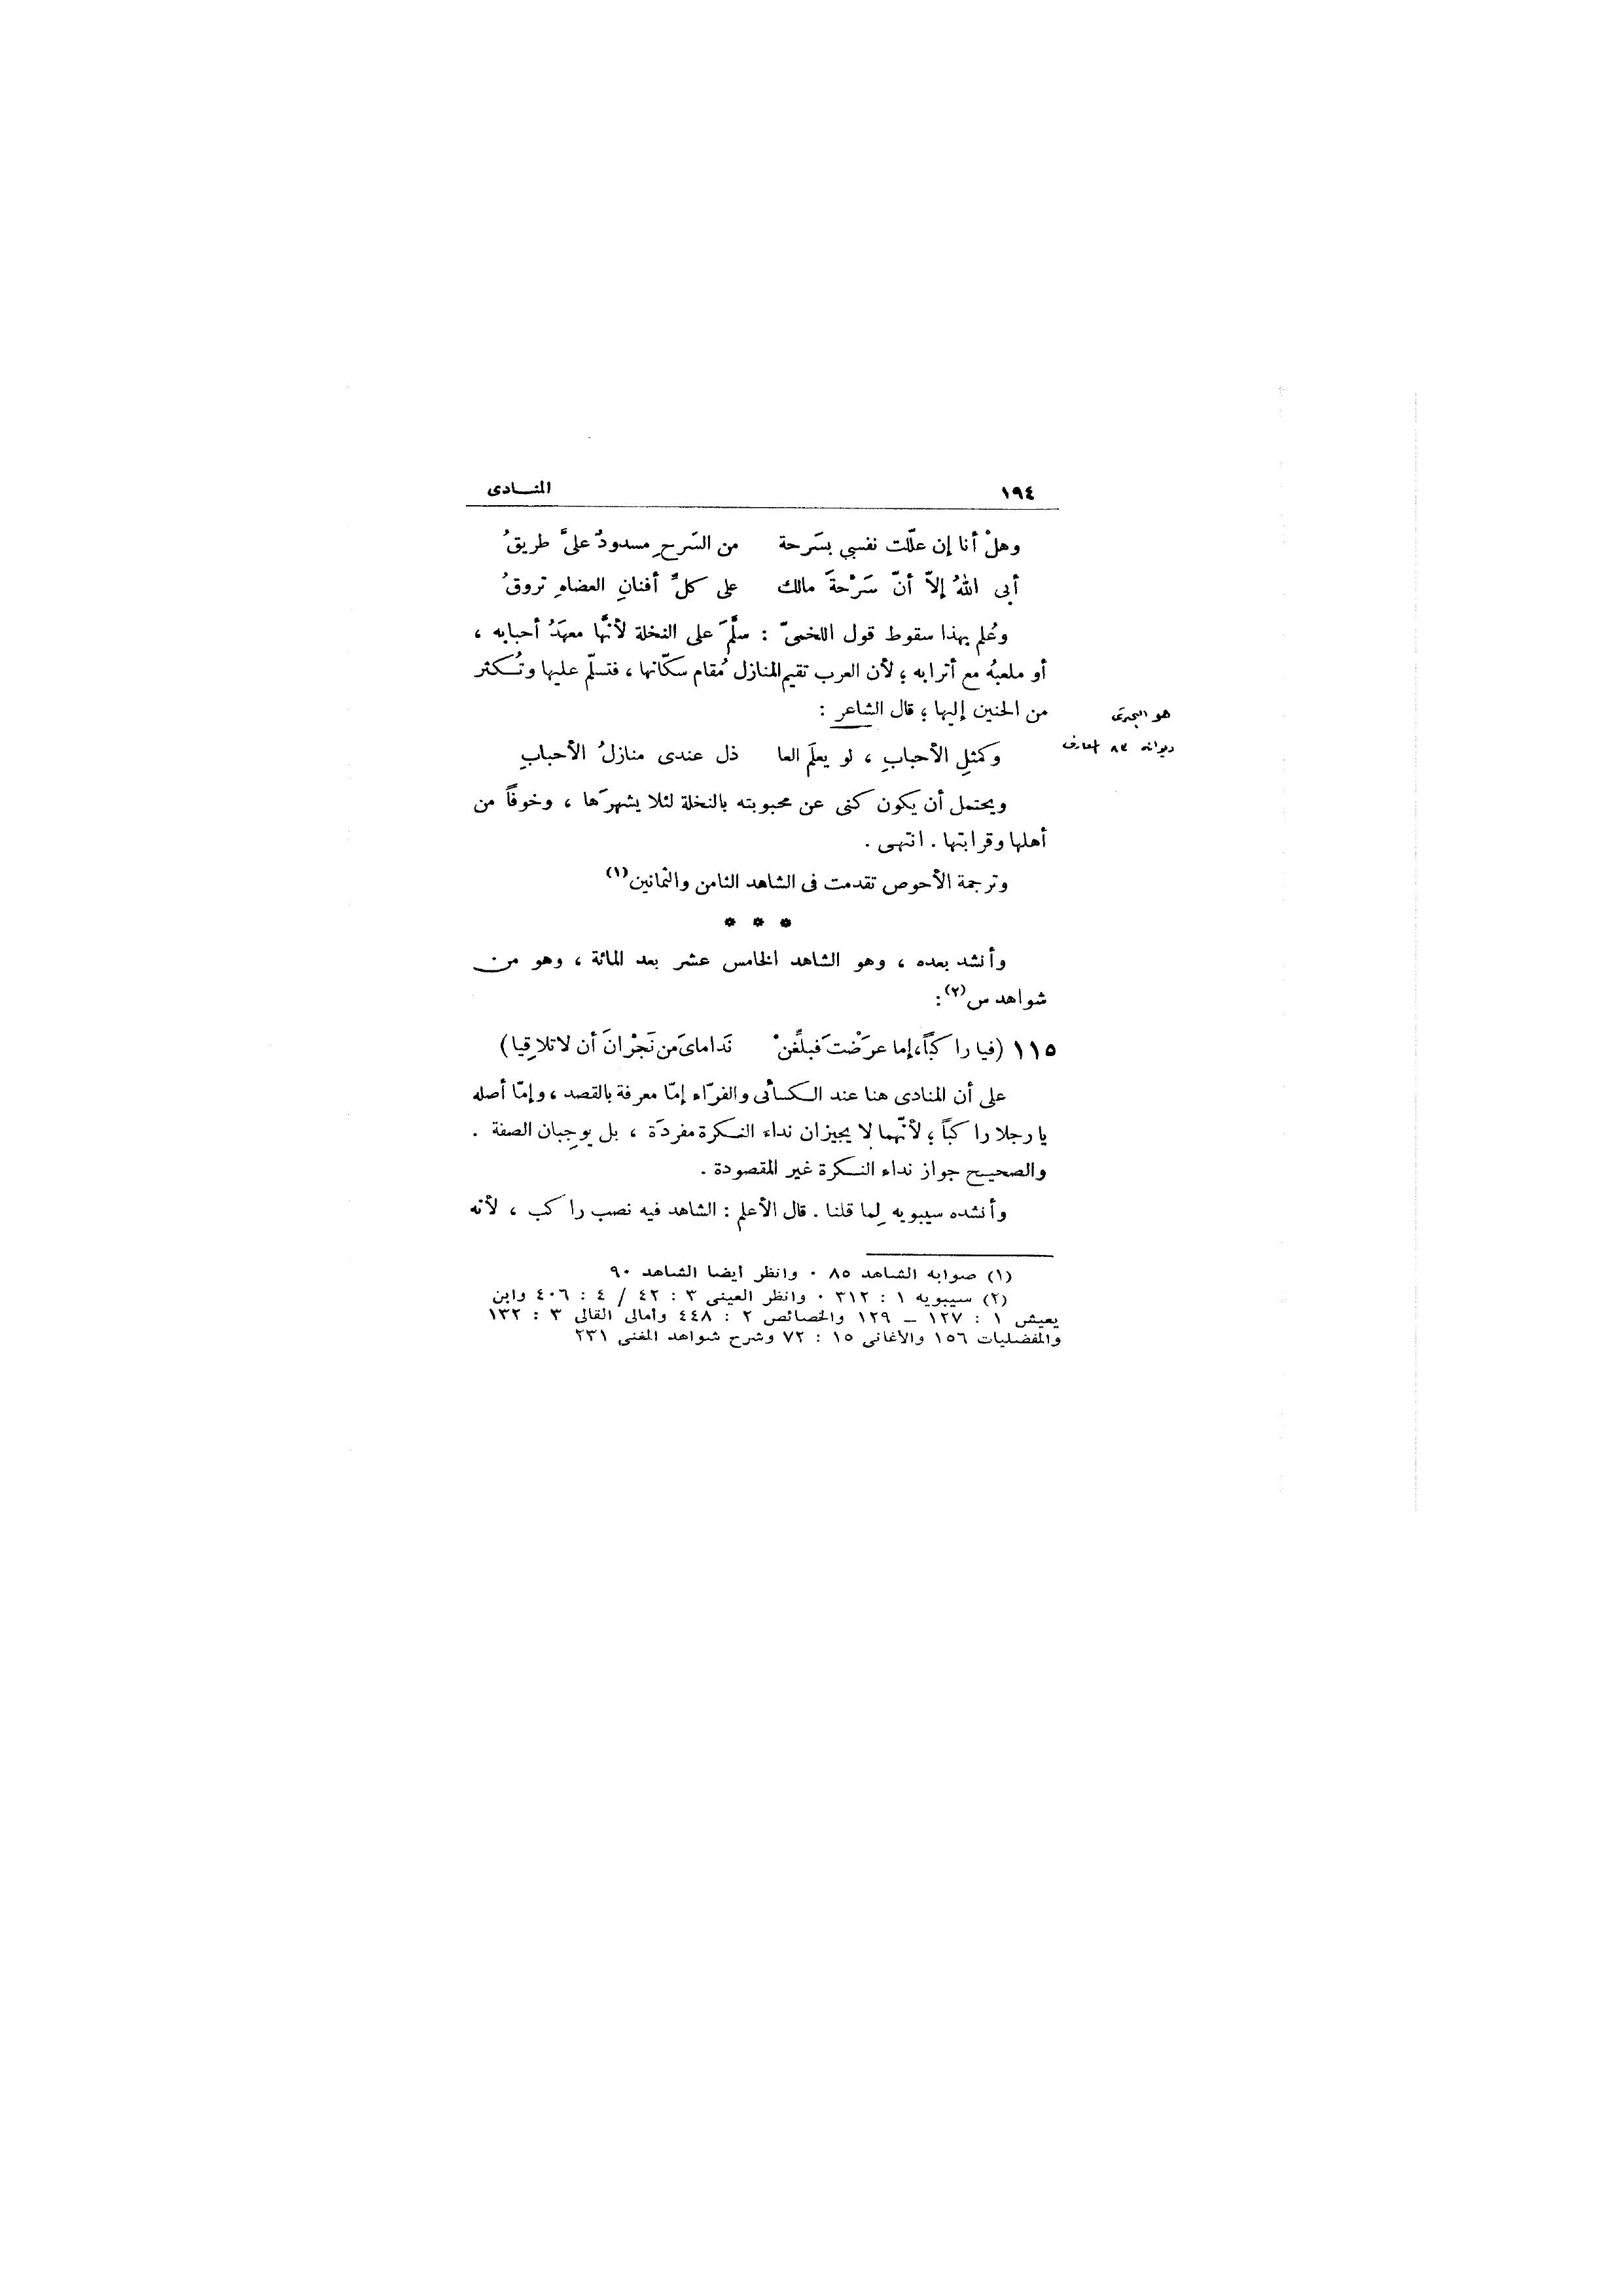 ١٩٤ المنـــادى
وهلْ أنا إن علّلت نفسي بسَرحة من السَرحِ مسدودٌ علىَّ طريقُ
أبى اللهُ إلاّ أنّ سَرْحةَ مالك على كلِّ أفنانِ العضاهِ تروقُ
وعُلم بهذا سقوط قول اللخمىّ : سلَّمَ على النخلة لأنَّها معهَدُ أحبابه ،
أو ملعبهُ مع أترابه ؛ لأن العرب تقيم المنازل مُقام سكّانها ، فتسلّم عليها وتُـكثر
من الحنين إليها ؛ قال الشاعر :
هو البحترى
ديوانه ٨٤ المعارف
وكمثلِ الأحبابِ ، لو يعلَم العا ذل عندى منازلُ الأحبابِ
ويحتمل أن يكون كنى عن محبوبته بالنخلة لئلا يشهرَها ، وخوفاً من
أهلها وقرابتها . انتهى .
وترجمة الأحوص تقدمت فى الشاهد الثامن والثمانين(١)
* * *
وأنشد بعده ، وهو الشاهد الخامس عشر بعد المائة ، وهو من
شواهد س(٢) :
١١٥ (فيا راكباً، إما عرَضْتَ فبلِّغَنْ نَدامايَ من نَجْرانَ أن لا تلاقِيا)
على أن المنادى هنا عند الـكسائى والفرّاء إمّا معرفة بالقصد ، وإمّا أصله
يا رجلا راكباً ؛ لأنّهما لا يجيزان نداء النـكرة مفردَة ، بل يوجِبان الصفة .
والصحيح جواز نداء النـكرة غير المقصودة .
وأنشده سيبويه لِما قلنا . قال الأعلم : الشاهد فيه نصب راكب ، لأنه
(١) صوابه الشاهد ٨٥ ٠ وانظر أيضا الشاهد ٩٠
(٢) سيبويه ١ : ٣١٢ ٠ وانظر العينى ٣ : ٤٢ / ٤ : ٤٠٦ وابن
يعيش ١ : ١٢٧ ــ ١٢٩ والخصائص ٢ : ٤٤٨ وأمالى القالى ٣ : ١٣٢
والمفضليات ١٥٦ والأغانى ١٥ : ٧٢ وشرح شواهد المغنى ٢٣١